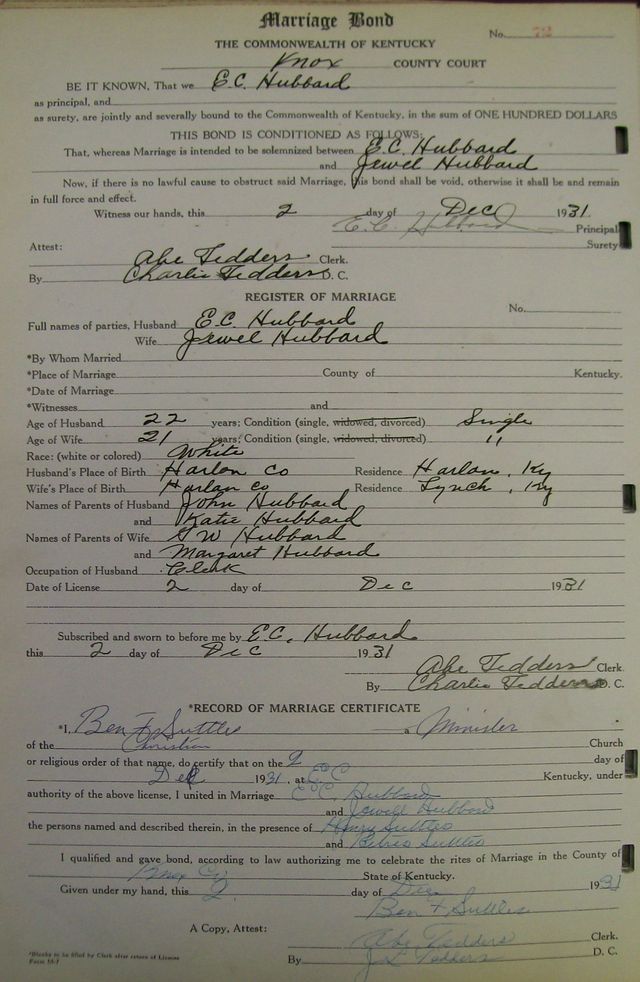 Marriage Bond
No. 72
THE COMMONWEALTH OF KENTUCKY
Knox COUNTY COURT
BE IT KNOWN, That we E.C. Hubbard
as principal, and
as surety, are jointly and severally bound to the Commonwealth of Kentucky, in the sum of ONE HUNDRED DOLLARS
THIS BOND IS CONDITIONED AS FOLLOWS:
That, whereas Marriage is intended to be solemnized between E.C. Hubbard
and Jewel Hubbard
Now, if there is no lawful cause to obstruct said Marriage, this bond shall be void, otherwise it shall be and remain
in full force and effect.
Witness our hands, this 2 day of Dec 1931.
E. C. Hubbard Principal
Surety
Attest:
Abe Tedders Clerk.
By Charlie Tedders D. C.
REGISTER OF MARRIAGE
No.
Full names of parties, Husband E.C. Hubbard
Wife Jewel Hubbard
*By Whom Married
*Place of Marriage County of Kentucky.
*Date of Marriage
*Witnesses and
Age of Husband 22 years; Condition (single, widowed, divorced) Single
Age of Wife 21 years; Condition (single, widowed, divorced) "
Race: (white or colored) White
Husband's Place of Birth Harlan Co Residence Harlan, Ky
Wife's Place of Birth Harlan Co Residence Lynch, Ky
Names of Parents of Husband John Hubbard
and Katie Hubbard
Names of Parents of Wife G W Hubbard
and Margaret Hubbard
Occupation of Husband Clerk
Date of License 2 day of Dec 1931
Subscribed and sworn to before me by E.C. Hubbard
this 2 day of Dec 1931
Abe Tedders Clerk.
By Charlie Tedders D. C.
*RECORD OF MARRIAGE CERTIFICATE
*I, Ben F Suttles a Minister
of the Christian Church
or religious order of that name, do certify that on the 2 day of
Dec 1931, at Kentucky, under
authority of the above license, I united in Marriage E.C. Hubbard
and Jewell Hubbard
the persons named and described therein, in the presence of Henry Suttles
and Suttles
I qualified and gave bond, according to law authorizing me to celebrate the rites of Marriage in the County of
Knox State of Kentucky.
Given under my hand, this 2 day of Dec 1931
Ben F Suttles
A Copy, Attest:
Abe Tedders Clerk.
By Tedders D. C.
*Blanks to be filled by Clerk after return of License